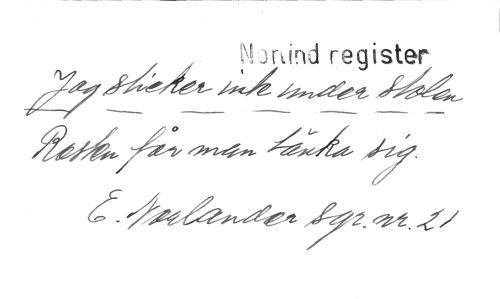 Norlind register
Jag sticker ink under stolen
Resten får man tänka sig.
E. Norlander sgr. nr. 21